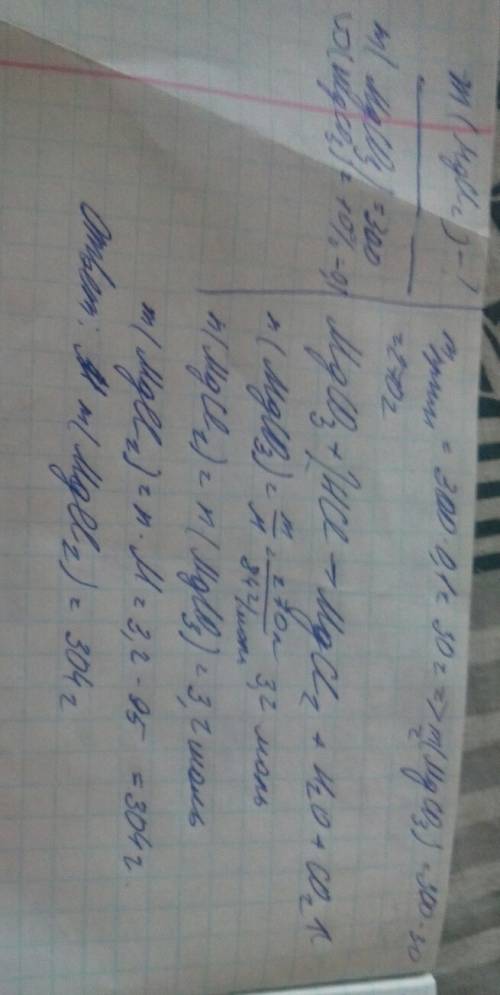 m(MgCO₃) = 300
ω(MgCO₃) = 10% = 0,1
m(MgCl₂) - ?
m = 300 · 0,1 = 30 г => m(MgCO₃) = 300 - 30
= 270 г
MgCO₃ + 2HCl → MgCl₂ + H₂O + CO₂ ↑
n(MgCO₃) = m/M = 270 г / 84 г/моль ~ 3,2 моль
n(MgCl₂) = n(MgCO₃) = 3,2 моль
m(MgCl₂) = n · M = 3,2 · 95 = 304 г.
Ответ: m(MgCl₂) = 304 г